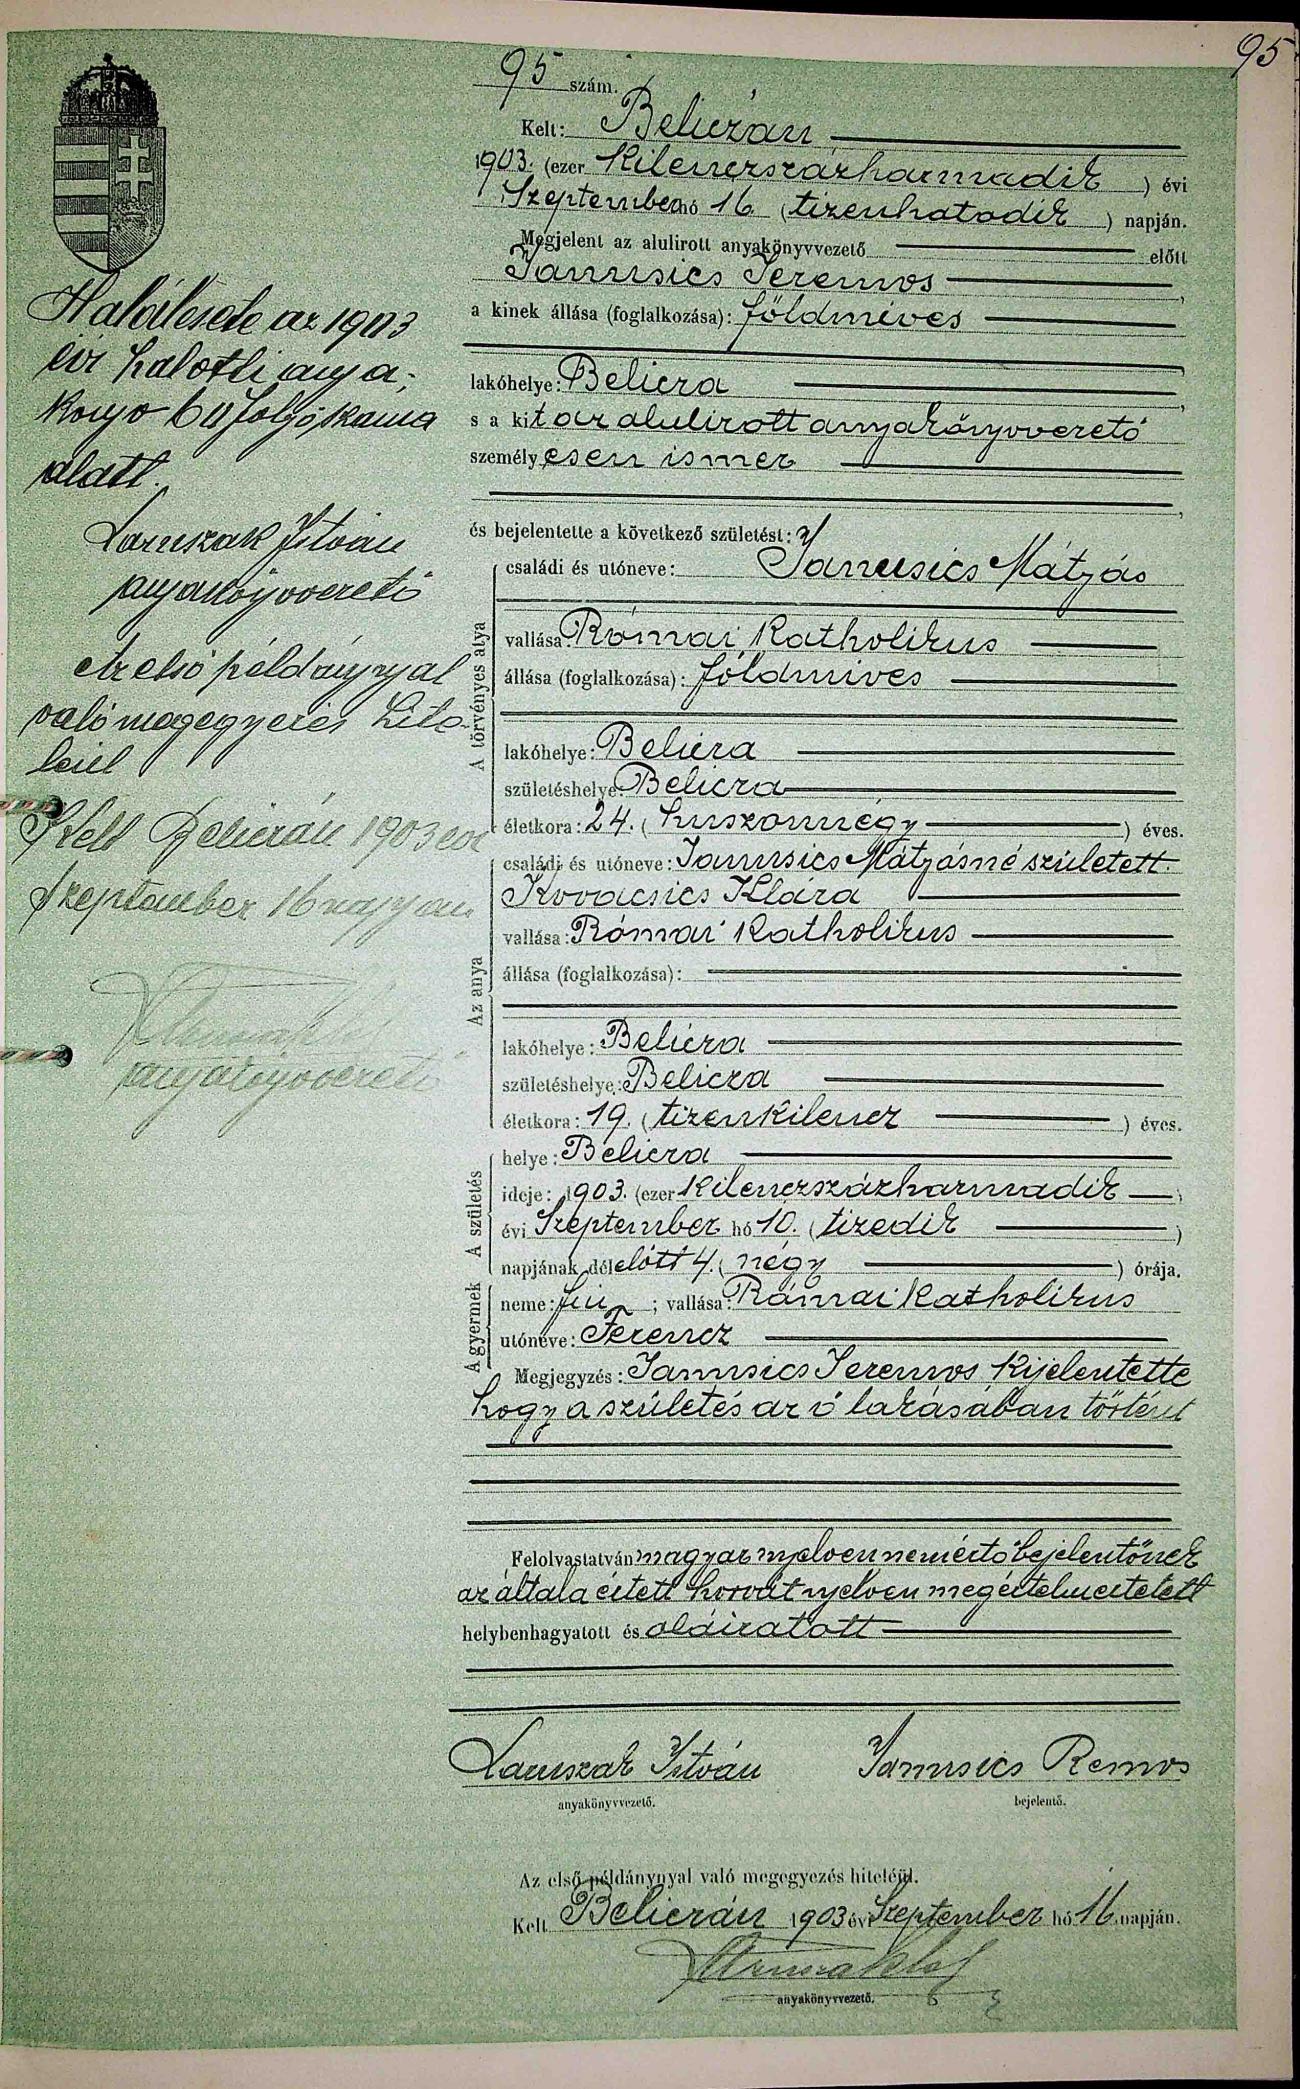 95
95 szám.
Kelt: Beliczán
1903. (ezer kilenczszázharmadik) évi
Szeptember hó 16. (tizenhatodik) napján.
Megjelent az alulirott anyakönyvvezető előtt
Janusics Jeremos
a kinek állása (foglalkozása): földmíves
lakóhelye: Belicza
s a kit az alulirott anyakönyvvezető
személyesen ismer
és bejelentette a következő születést:
A törvényes atya
családi és utóneve: Janusics Mátyás
vallása: Római Katholikus
állása (foglalkozása): földmíves
lakóhelye: Belicza
születéshelye: Belicza
életkora: 24. (huszonnégy) éves.
Az anya
családi és utóneve: Janusics Mátyásné született
Kovacsics Klára
vallása: Római Katholikus
állása (foglalkozása):
lakóhelye: Belicza
születéshelye: Belicza
életkora: 19. (tizenkilencz) éves.
A születés
helye: Belicza
ideje: 1903. (ezer kilenczszázharmadik)
évi Szeptember hó 10. (tizedik)
napjának délelőtt 4. (négy) órája.
A gyermek
neme: fiú; vallása: Római Katholikus
utóneve: Ferencz
Megjegyzés: Janusics Jeremos kijelentette
hogy a születés az ő lakásában történt
Felolvastatván magyar nyelven nem értő bejelentőnek
az általa értett horvát nyelven megértelmeztetett
helybenhagyatott és aláiratott
Laruszak István Janusics Remos
anyakönyvvezető. bejelentő.
Az első példánynyal való megegyezés hiteléül.
Kelt Beliczán 1903 évi Szeptember hó 16. napján.
anyakönyvvezető.
Halálesete az 1903
évi halotti anya-
könyv 60 folyószáma
alatt.
Laruszak István
anyakönyvvezető
Az első példánynyal
való megegyezés hite-
léül
Kelt Beliczán 1903 évi
Szeptember 16 napján
anyakönyvvezető